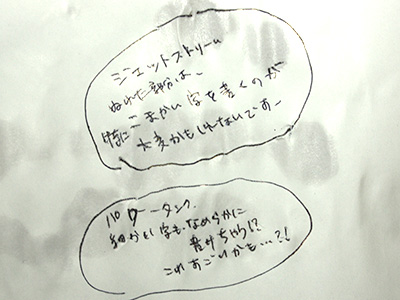 ジェットストリーム
ぬれた部分は、
こまかい字を書くのが
特に大変かもしれないですー
パワータンク
細かい字も、なめらかに
書けちゃう!?
これすごいかも…?!